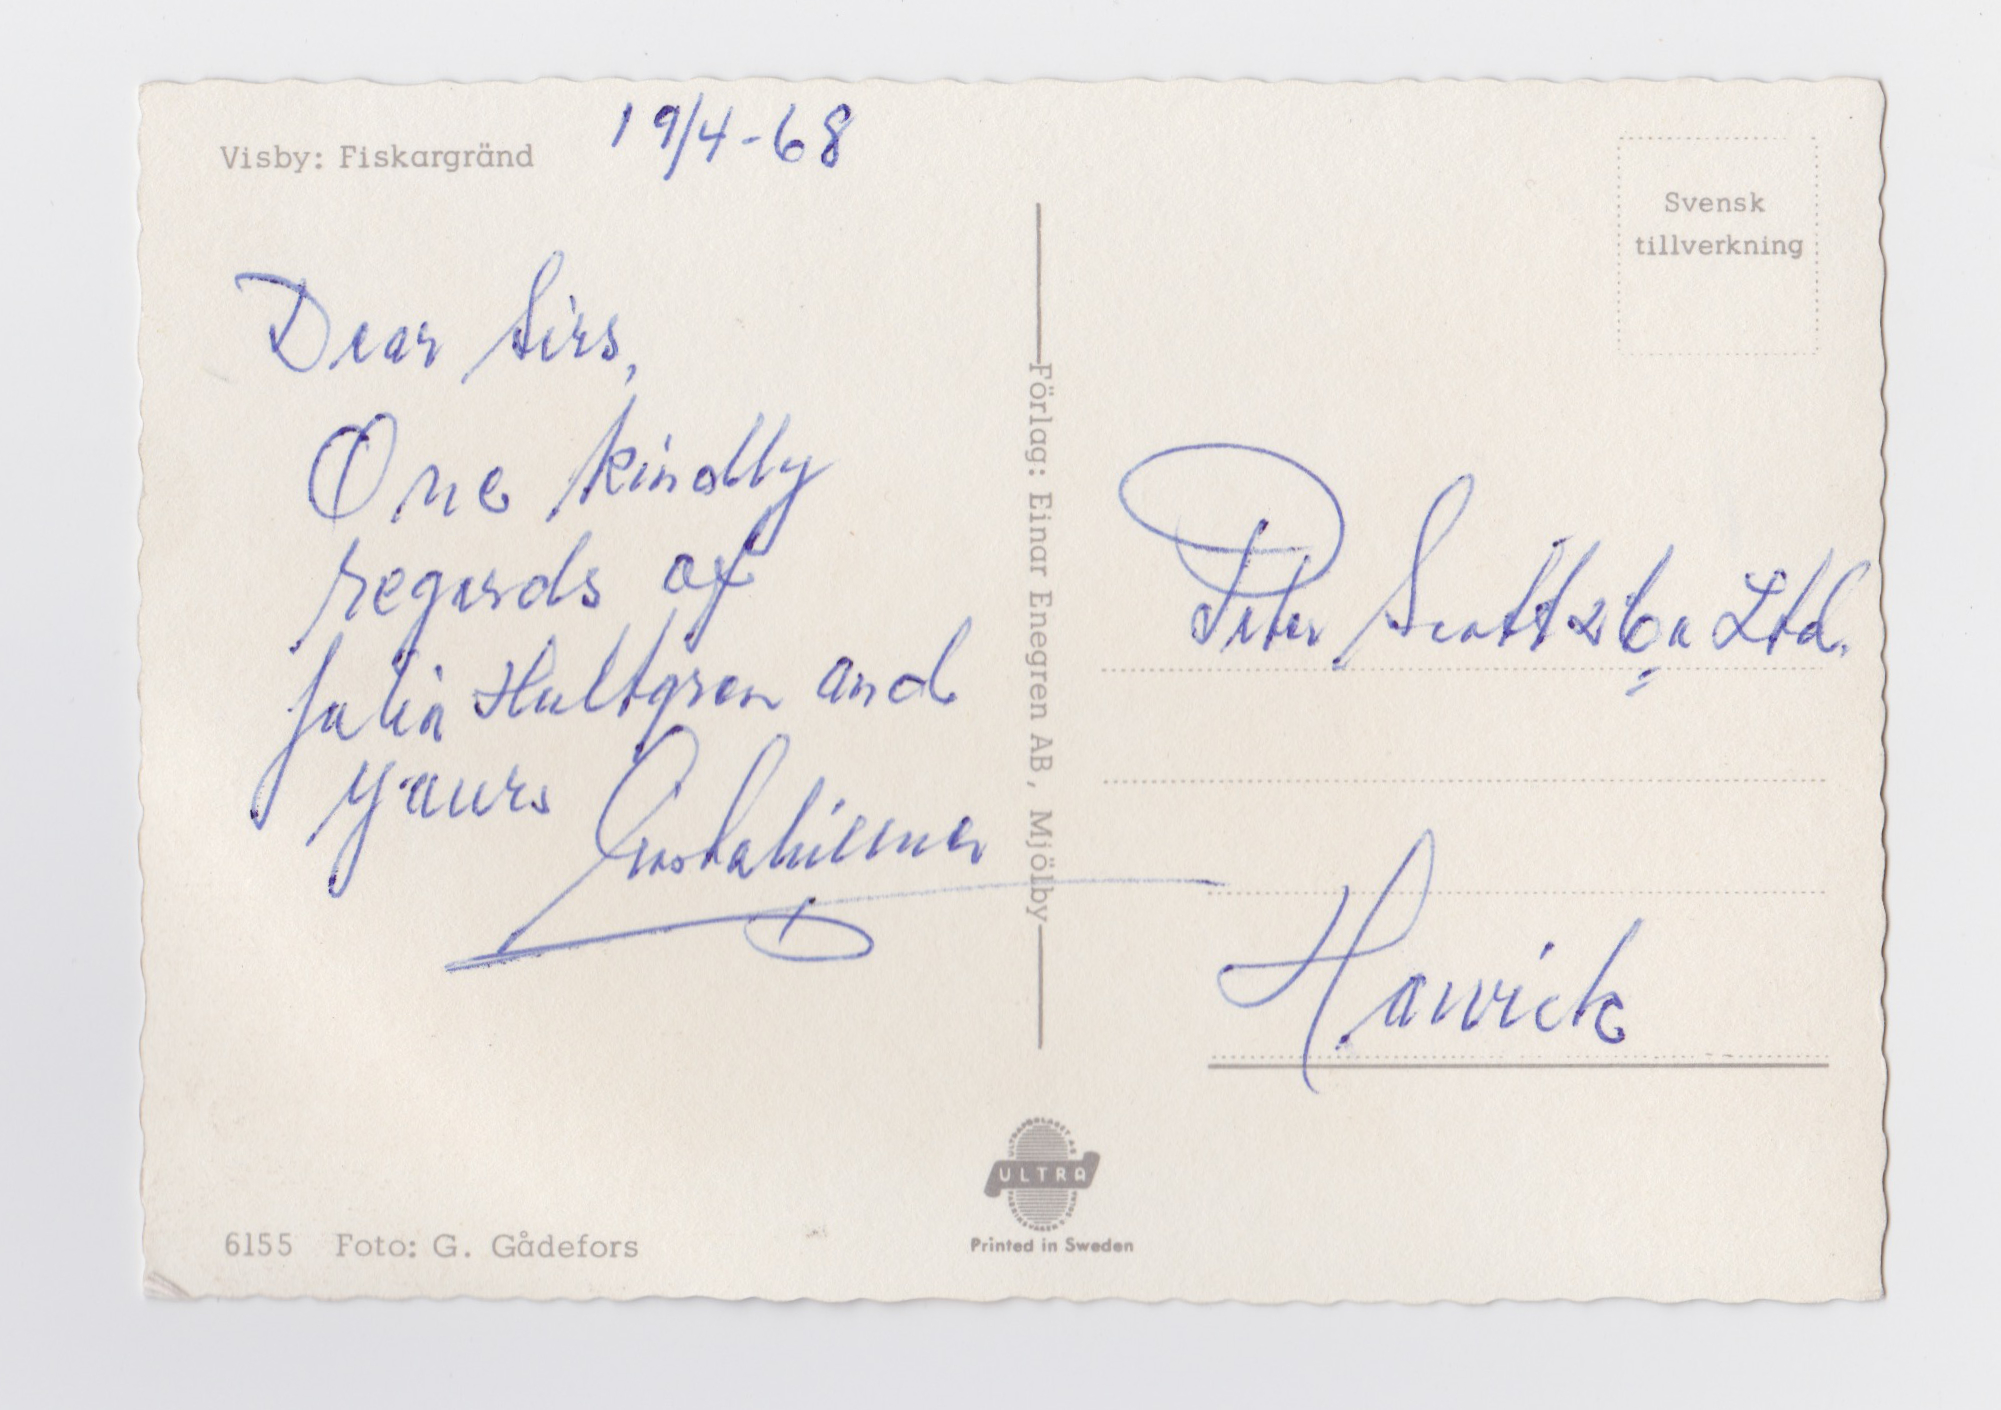 Visby: Fiskargränd
19/4-68
Dear Sirs,
One kindly
regards of
Julia Hultgren and
yours
Svensk
tillverkning
Förlag: Einar Enegren AB, Mjölby
Peter Scott & Co Ltd.
Hawick
6155 Foto: G. Gådefors
ULTRA
Printed in Sweden